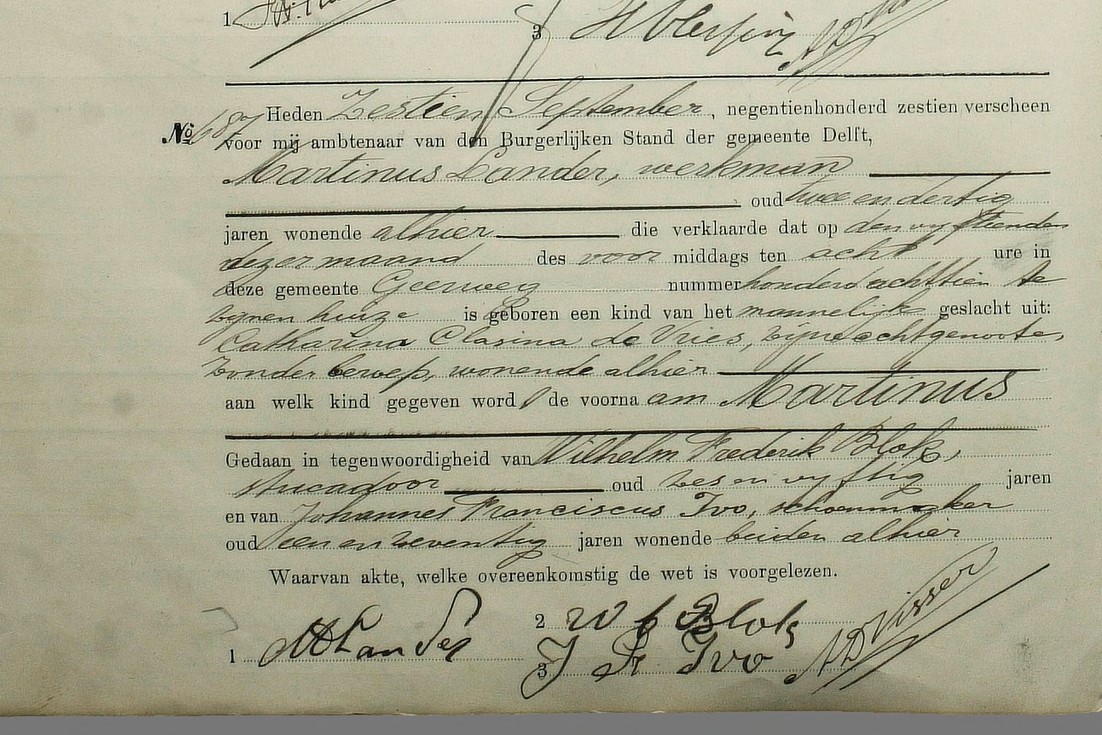 1 3 H Olersing
Nº 687 Heden Zestien September, negentienhonderd zestien verscheen
voor mij ambtenaar van den Burgerlijken Stand der gemeente Delft,
Martinus Lander, werkman
oud twee en dertig
jaren wonende alhier die verklaarde dat op den vyftienden
dezer maand des voor middags ten acht ure in
deze gemeente Geerweg nummer honderd achttien te
zynen huize is geboren een kind van het mannelijke geslacht uit:
Catharina Clasina de Vries, zyne echtgenoote,
zonder beroep, wonende alhier
aan welk kind gegeven word de voorna am Martinus
Gedaan in tegenwoordigheid van Wilhelm Frederik Blok,
stucadoor oud zes en vyftig jaren
en van Johannes Franciscus Ivo, schoenmaker
oud een en zeventig jaren wonende beiden alhier
Waarvan akte, welke overeenkomstig de wet is voorgelezen.
2 W f Blok
1 M Lander
3 J Fr Ivo AD Visser